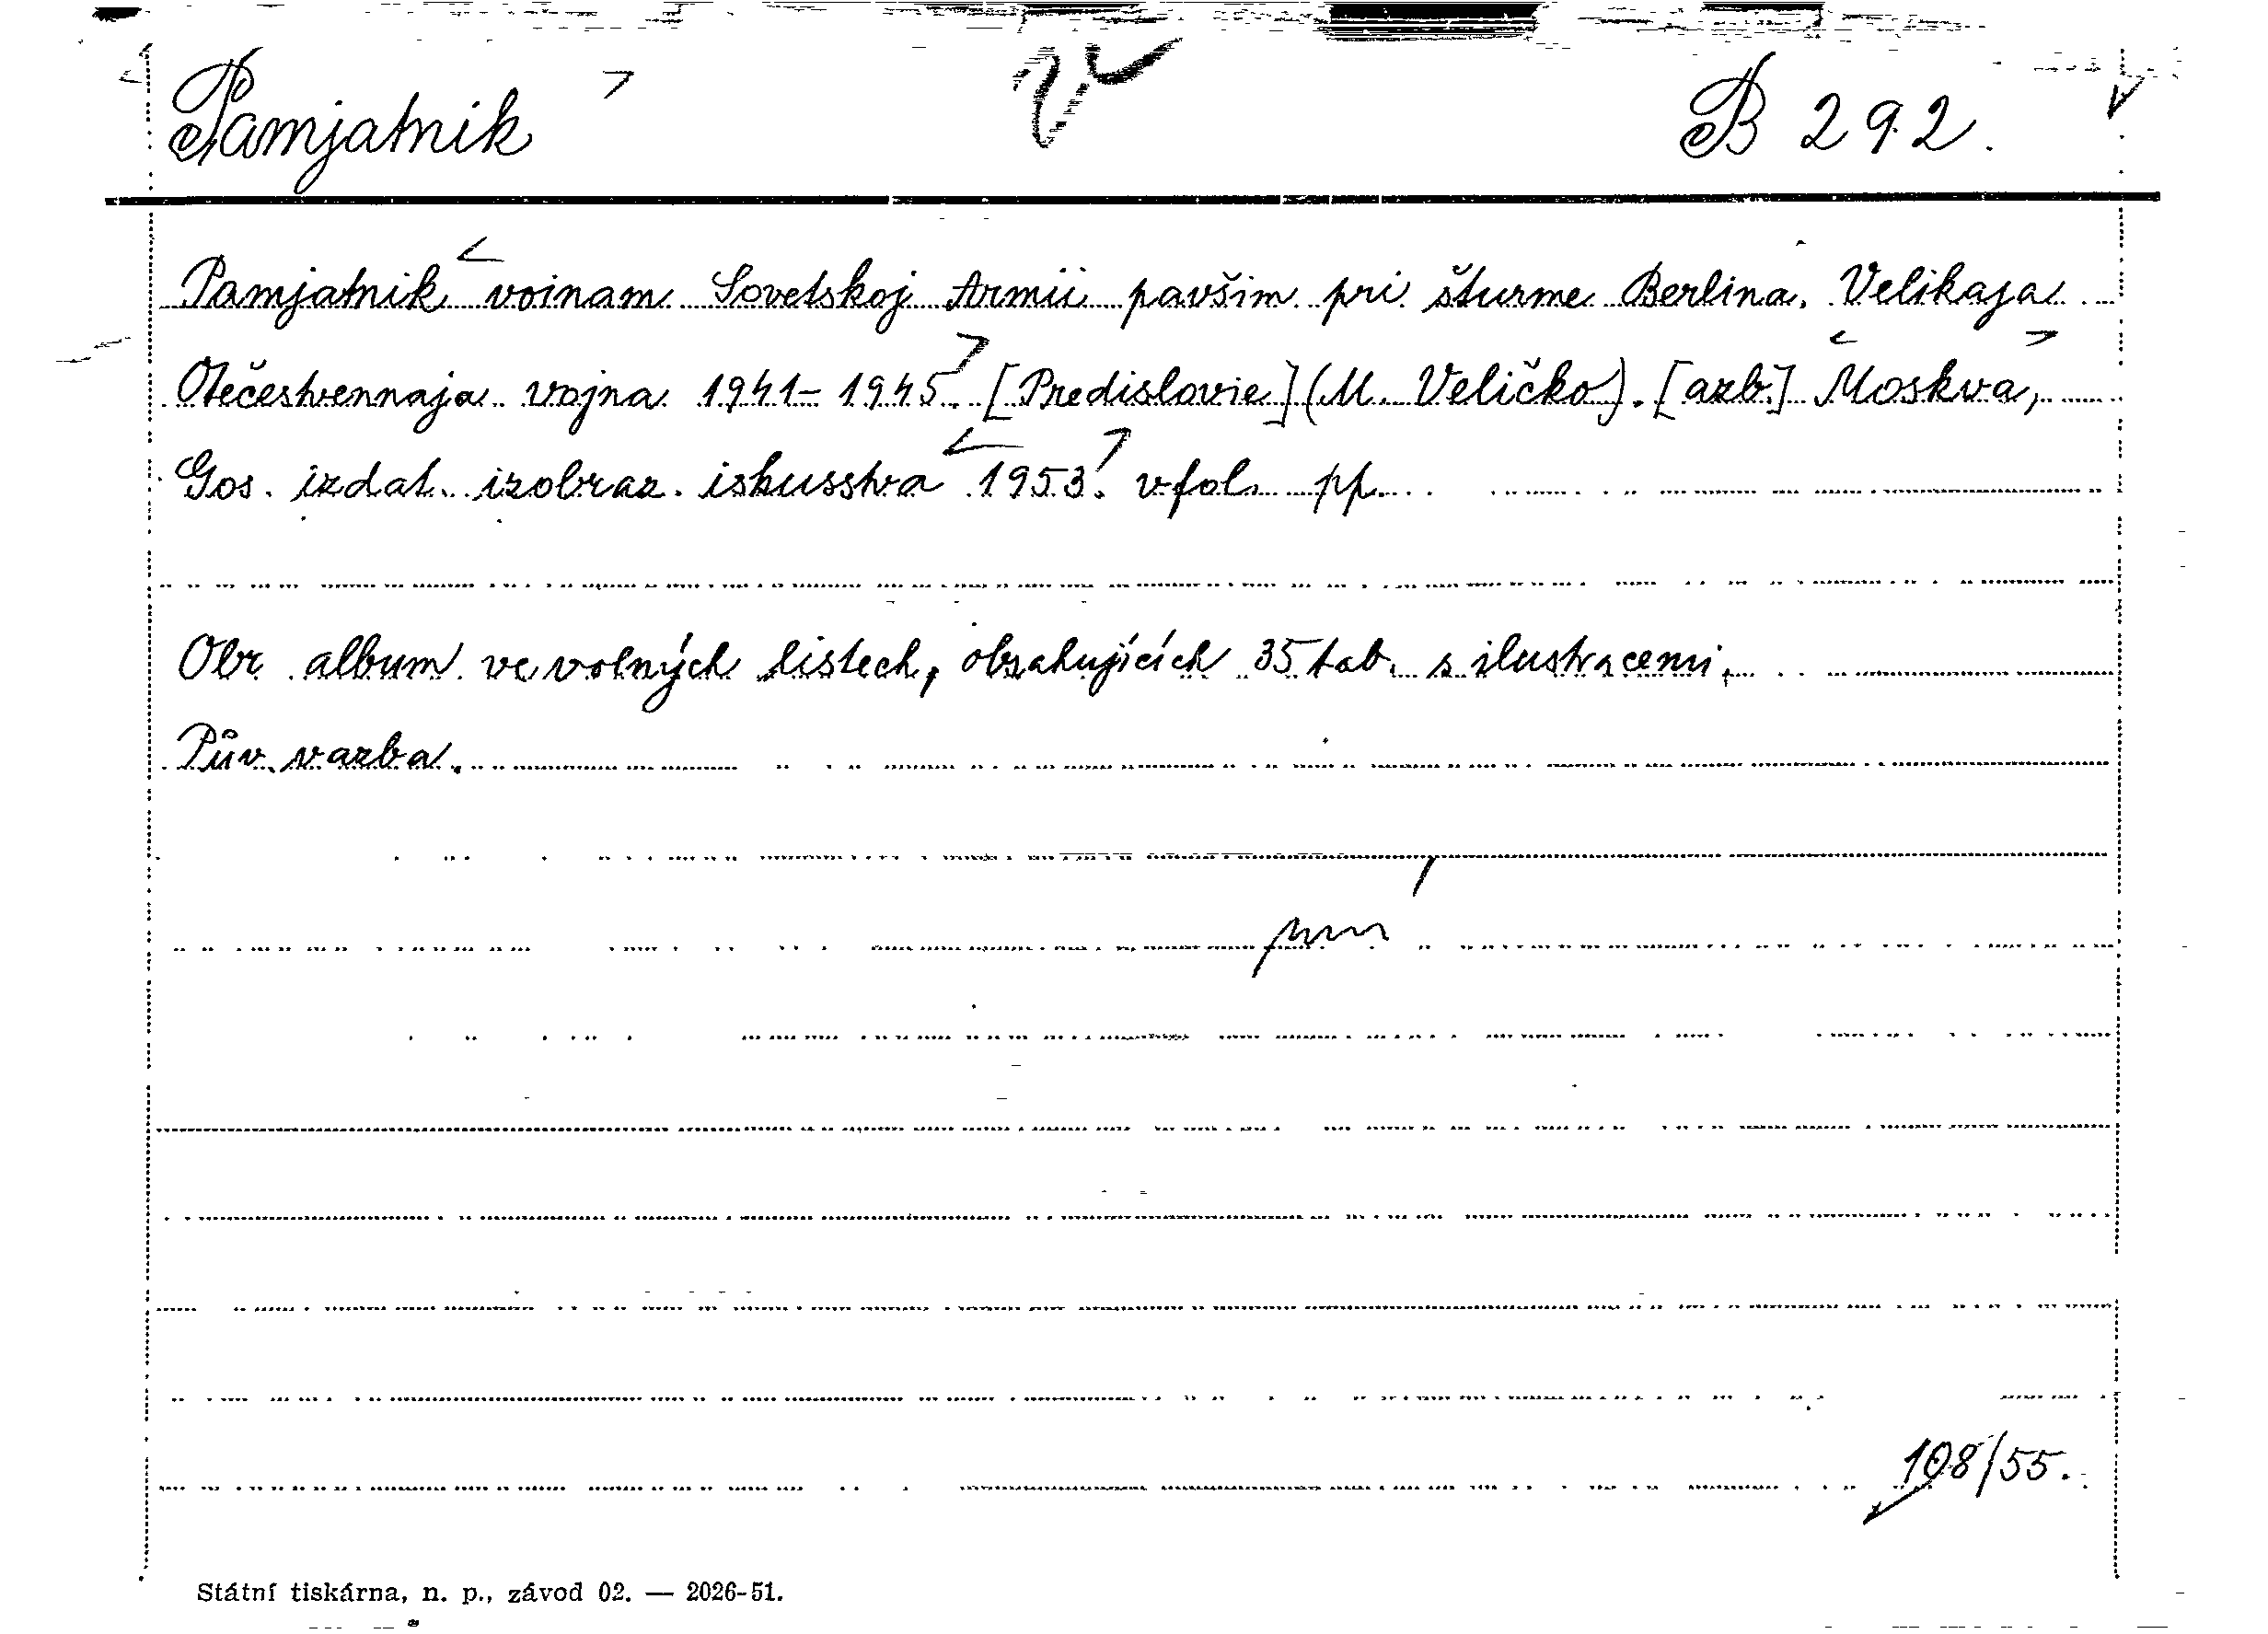 Pamjatnik B 292.
Pamjatnik voinam Sovetskoj Armii pavšim pri šturme Berlina. Velikaja
Otečestvennaja vojna 1941-1945. [Predislovie] (M. Veličko). [azb.] Moskva,
Gos. izdat. izobraz. iskusstva 1953. v fol. pp.
Obr. album ve volných listech, obsahujících 35 tab. s ilustracemi.
Pův. vazba.
108/55.
Státní tiskárna, n. p., závod 02. — 2026-51.